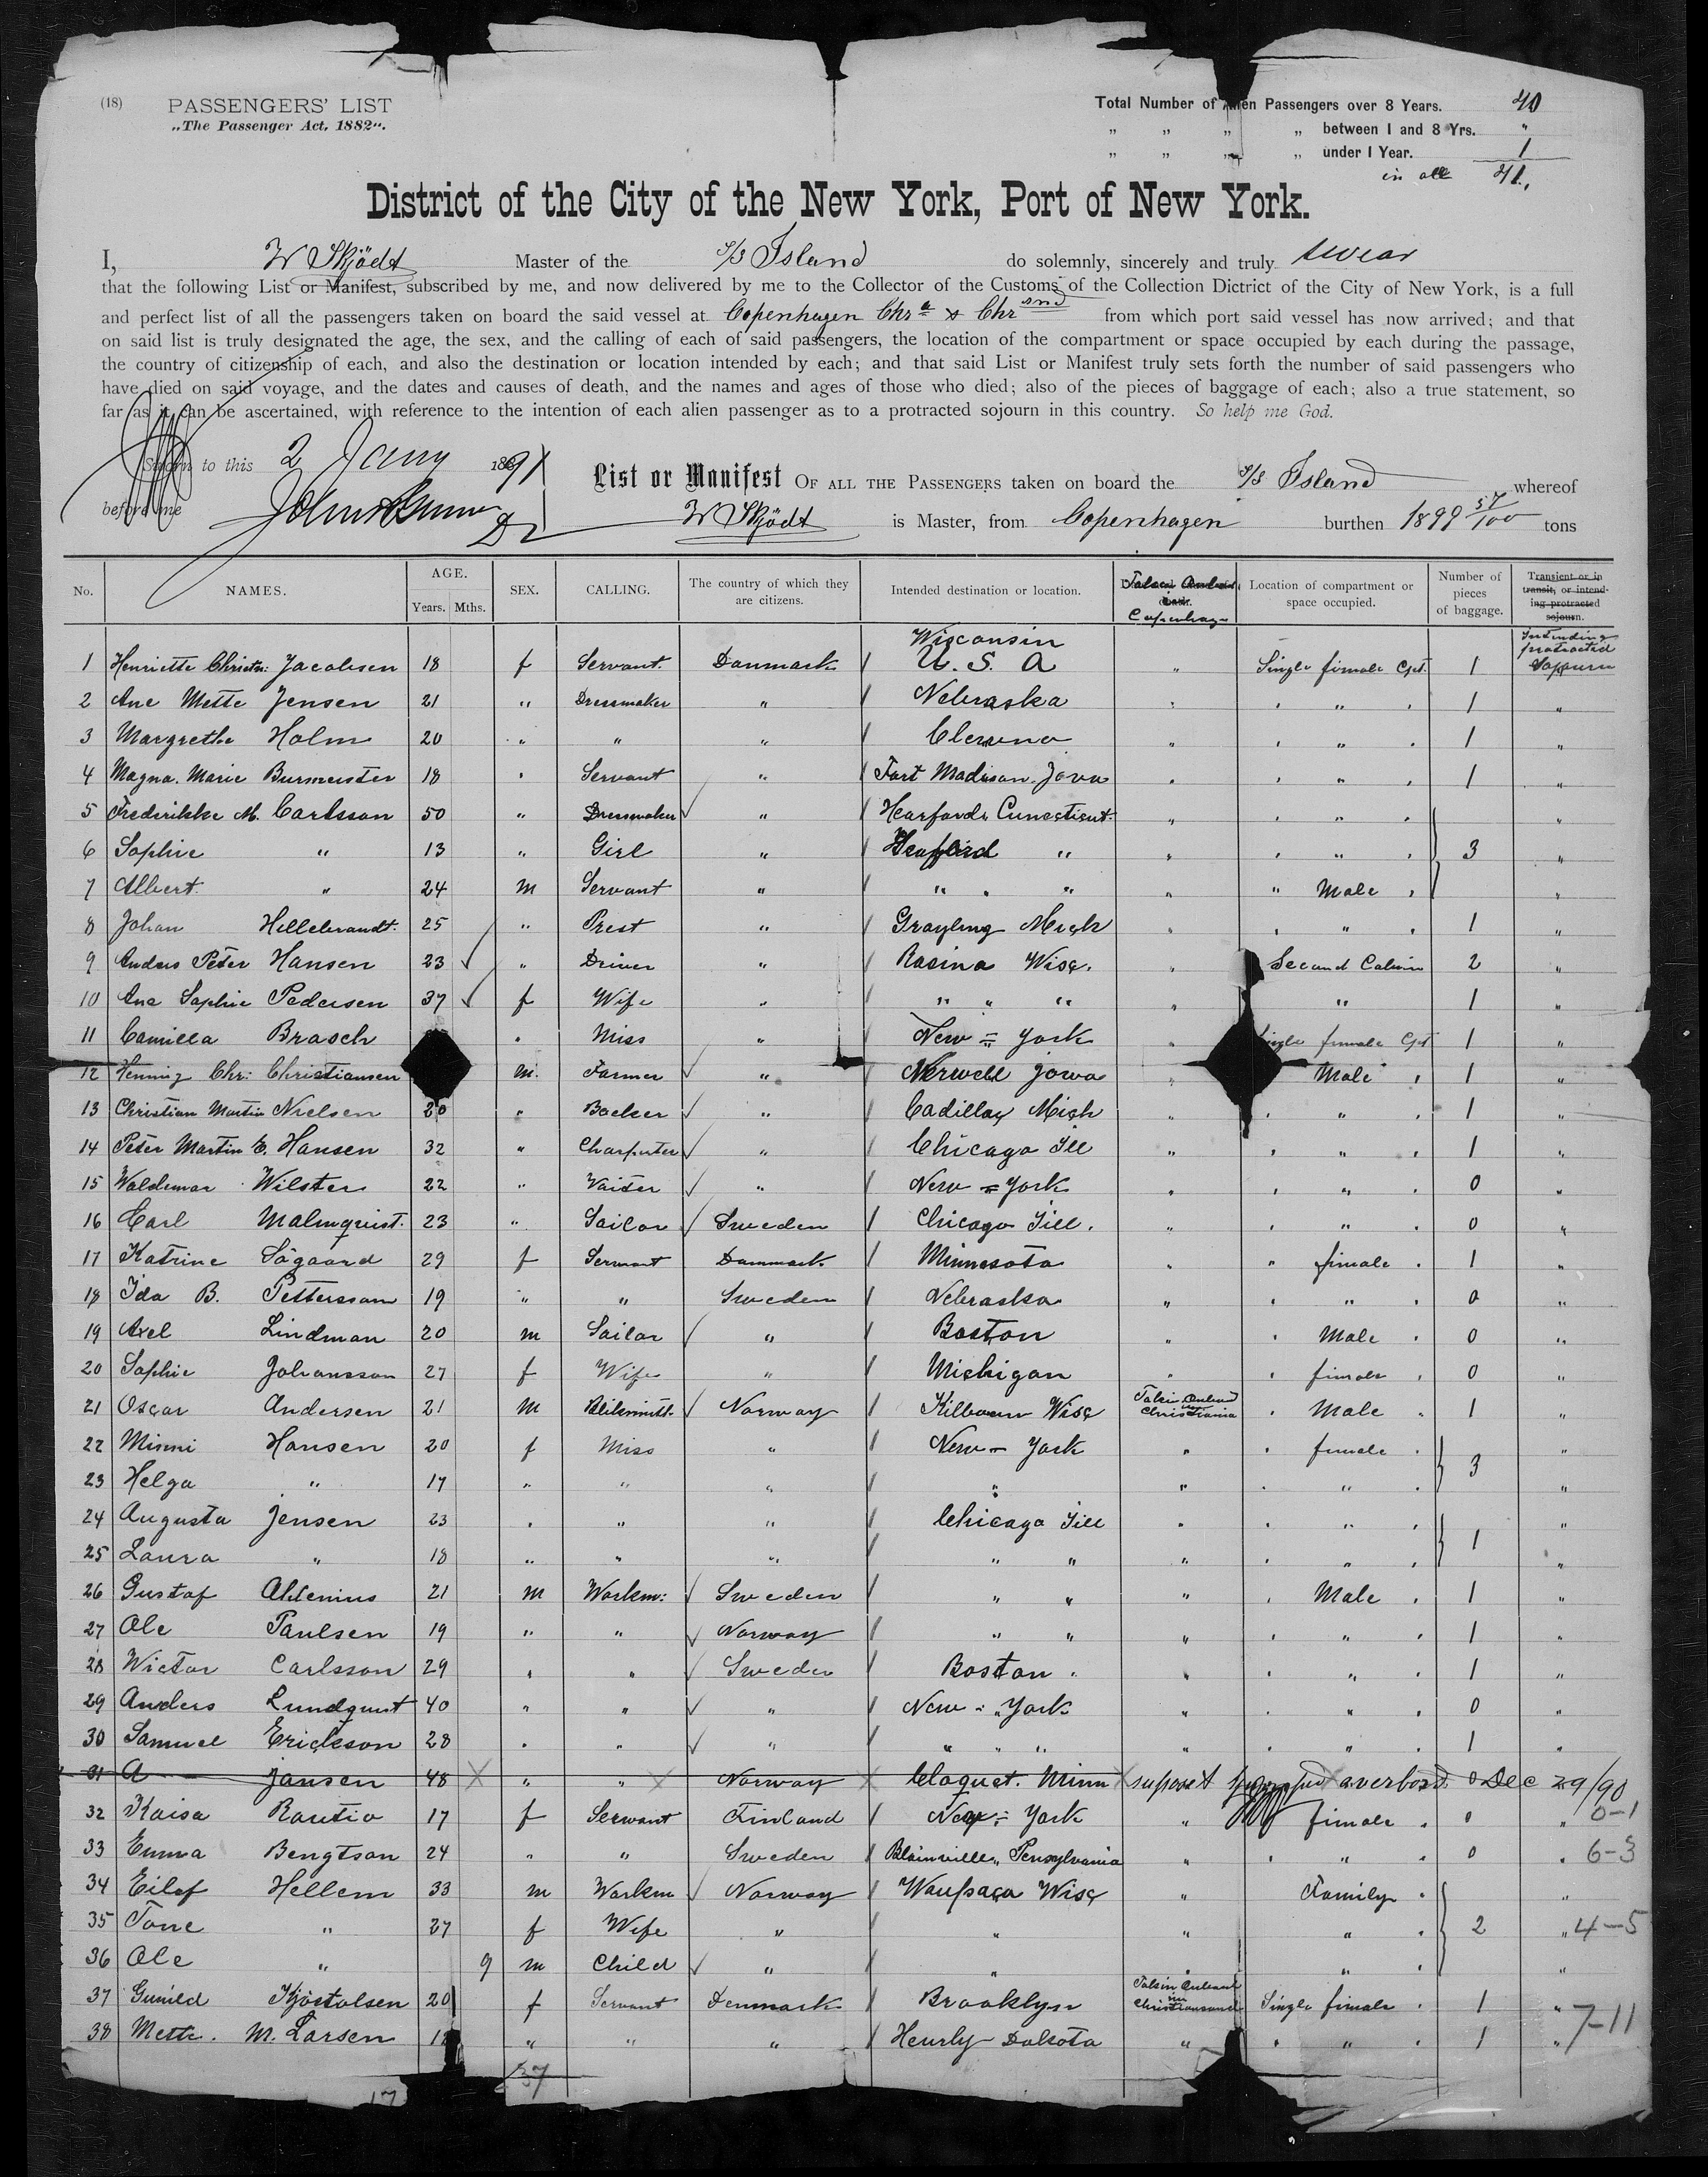 (18) PASSENGERS' LIST
„The Passenger Act, 1882“.
Total Number of Alien Passengers over 8 Years. 40
„ „ „ „ between 1 and 8 Yrs. "
„ „ „ „ under 1 Year. 1
in all 41.
District of the City of the New York, Port of New York.
I, W Skjödt Master of the S/S Island do solemnly, sincerely and truly swear
that the following List or Manifest, subscribed by me, and now delivered by me to the Collector of the Customs of the Collection Dictrict of the City of New York, is a full
and perfect list of all the passengers taken on board the said vessel at Copenhagen Chr a & Chr sand from which port said vessel has now arrived; and that
on said list is truly designated the age, the sex, and the calling of each of said passengers, the location of the compartment or space occupied by each during the passage,
the country of citizenship of each, and also the destination or location intended by each; and that said List or Manifest truly sets forth the number of said passengers who
have died on said voyage, and the dates and causes of death, and the names and ages of those who died; also of the pieces of baggage of each; also a true statement, so
far as it can be ascertained, with reference to the intention of each alien passenger as to a protracted sojourn in this country. So help me God.
Sworn to this 2 Jany 1891
before me
List or Manifest OF ALL THE PASSENGERS taken on board the S/S Island whereof
W Skjödt is Master, from Copenhagen burthen 1899 57/100 tons
No. NAMES. AGE. Years. Mths. SEX. CALLING. The country of which they are citizens. Intended destination or location. Copenhagen Location of compartment or space occupied. Number of pieces of baggage. Transient or in transit, or intending protracted sojourn.
1 Henriette Christn: Jacobsen 18 f Servant. Danmark Wisconsin U. S. A " Single female Cpt. 1 Intending protracted sojourn
2 Ane Mette Jensen 21 " Dressmaker " Nebraska " " " " 1 "
3 Margrethe Holm 20 " " " " " " " 1 "
4 Magna. Marie Burmeister 18 " Servant " Fort Madison Jova " " " " 1 "
5 Frederikke M. Carlsson 50 " Dressmaker " Hearfords Cunecticut " " " " "
6 Sophie " 13 " Girl " " " " " " 3 "
7 Albert " 24 m Servant " " " " " Male " "
8 Johan Hillebrandt 25 " Prest " Grayling Mich " " " " 1 "
9 Anders Peter Hansen 23 " Driver " Rasina Wisc. " Second Cabin 2 "
10 Ane Sophie Pedersen 37 f Wife " " " " " " 1 "
11 Camilla Brasch " Miss " New = York " Single female Cpt 1 "
12 Henning Chr: Christiansen m. Farmer " Nerwell Jowa " Male " 1 "
13 Christian Martin Nielsen 20 " Backer " Cadillac Mich " " " " 1 "
14 Peter Martin E. Hansen 32 " Charpenter " Chicago Ill " " " " 1 "
15 Waldemar Wilster 22 " Vaiter " New = York " " " " 0 "
16 Carl Malmquist. 23 " Sailor Sweden Chicago Jill. " " " " 0 "
17 Katrine Sögaard 29 f Servant Danmark Minnesota " " female " 1 "
18 Ida B. Pettersson 19 " " Sweden Nebraska " " " " 0 "
19 Axel Lindman 20 m Sailor " Boston " " Male " 0 "
20 Sophie Johansson 27 f Wife " Michigan " " female " 0 "
21 Oscar Andersen 21 m Norway Kilbourn Wisc Christiania " Male " 1 "
22 Minni Hansen 20 f Miss " New = York " " female " "
23 Helga " 17 " " " " " " " " 3 "
24 Augusta Jensen 23 " " " Chicago Jill " " " " "
25 Laura " 18 " " " " " " " " " 1 "
26 Gustaf Ahlenius 21 m Workm: Sweden " " " " Male " 1 "
27 Ole Paulsen 19 " " Norway " " " " " " 1 "
28 Wictor Carlsson 29 " " Sweden Boston " " " " 1 "
29 Anders Lundquist 40 " " " New = York " " " " 0 "
30 Samuel Erickson 28 " " " " " " " " " " 1 "
31 A Jansen 48 " " Norway Cloquet. Minn suposet jumped averbord 0 Dec 29/90
32 Kaisa Rautio 17 f Servant Finland New = York " female " 0 " 0-1
33 Emma Bengtson 24 " " Sweden Blainville " Pensylvania " " " " 0 " 6-3
34 Eilef Hellem 33 m Workm Norway Waupaca Wisc " Family " "
35 Tone " 27 f Wife " " " " " 2 " 4-5
36 Ole " 9 m Child " " " " " "
37 Gunild Kjöstolsen 20 f Servant Denmark Brooklyn Christiansand Single female " 1 "
38 Mette. M. Larsen " " " Henrly Dakota " " " " 1 " 7-11
37
17